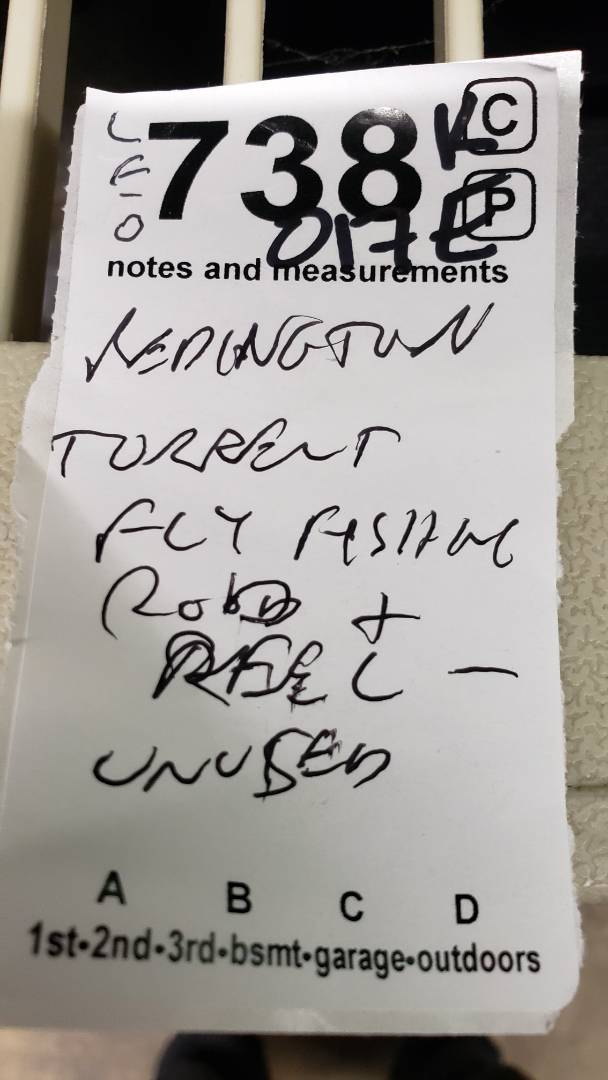 738 K C
017E P
notes and measurements
REDINGTON
TORRENT
FLY FISHING
ROD +
REEL —
UNUSED
A B C D
1st•2nd•3rd•bsmt•garage•outdoors